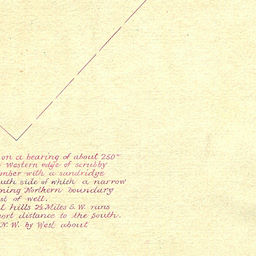 on a bearing of about 250°
Western edge of scrubby
with a sandridge
side of which a narrow
Northern boundary
of well.
hills 2½ Miles S.W. runs
distance to the South.
N.W. by West about